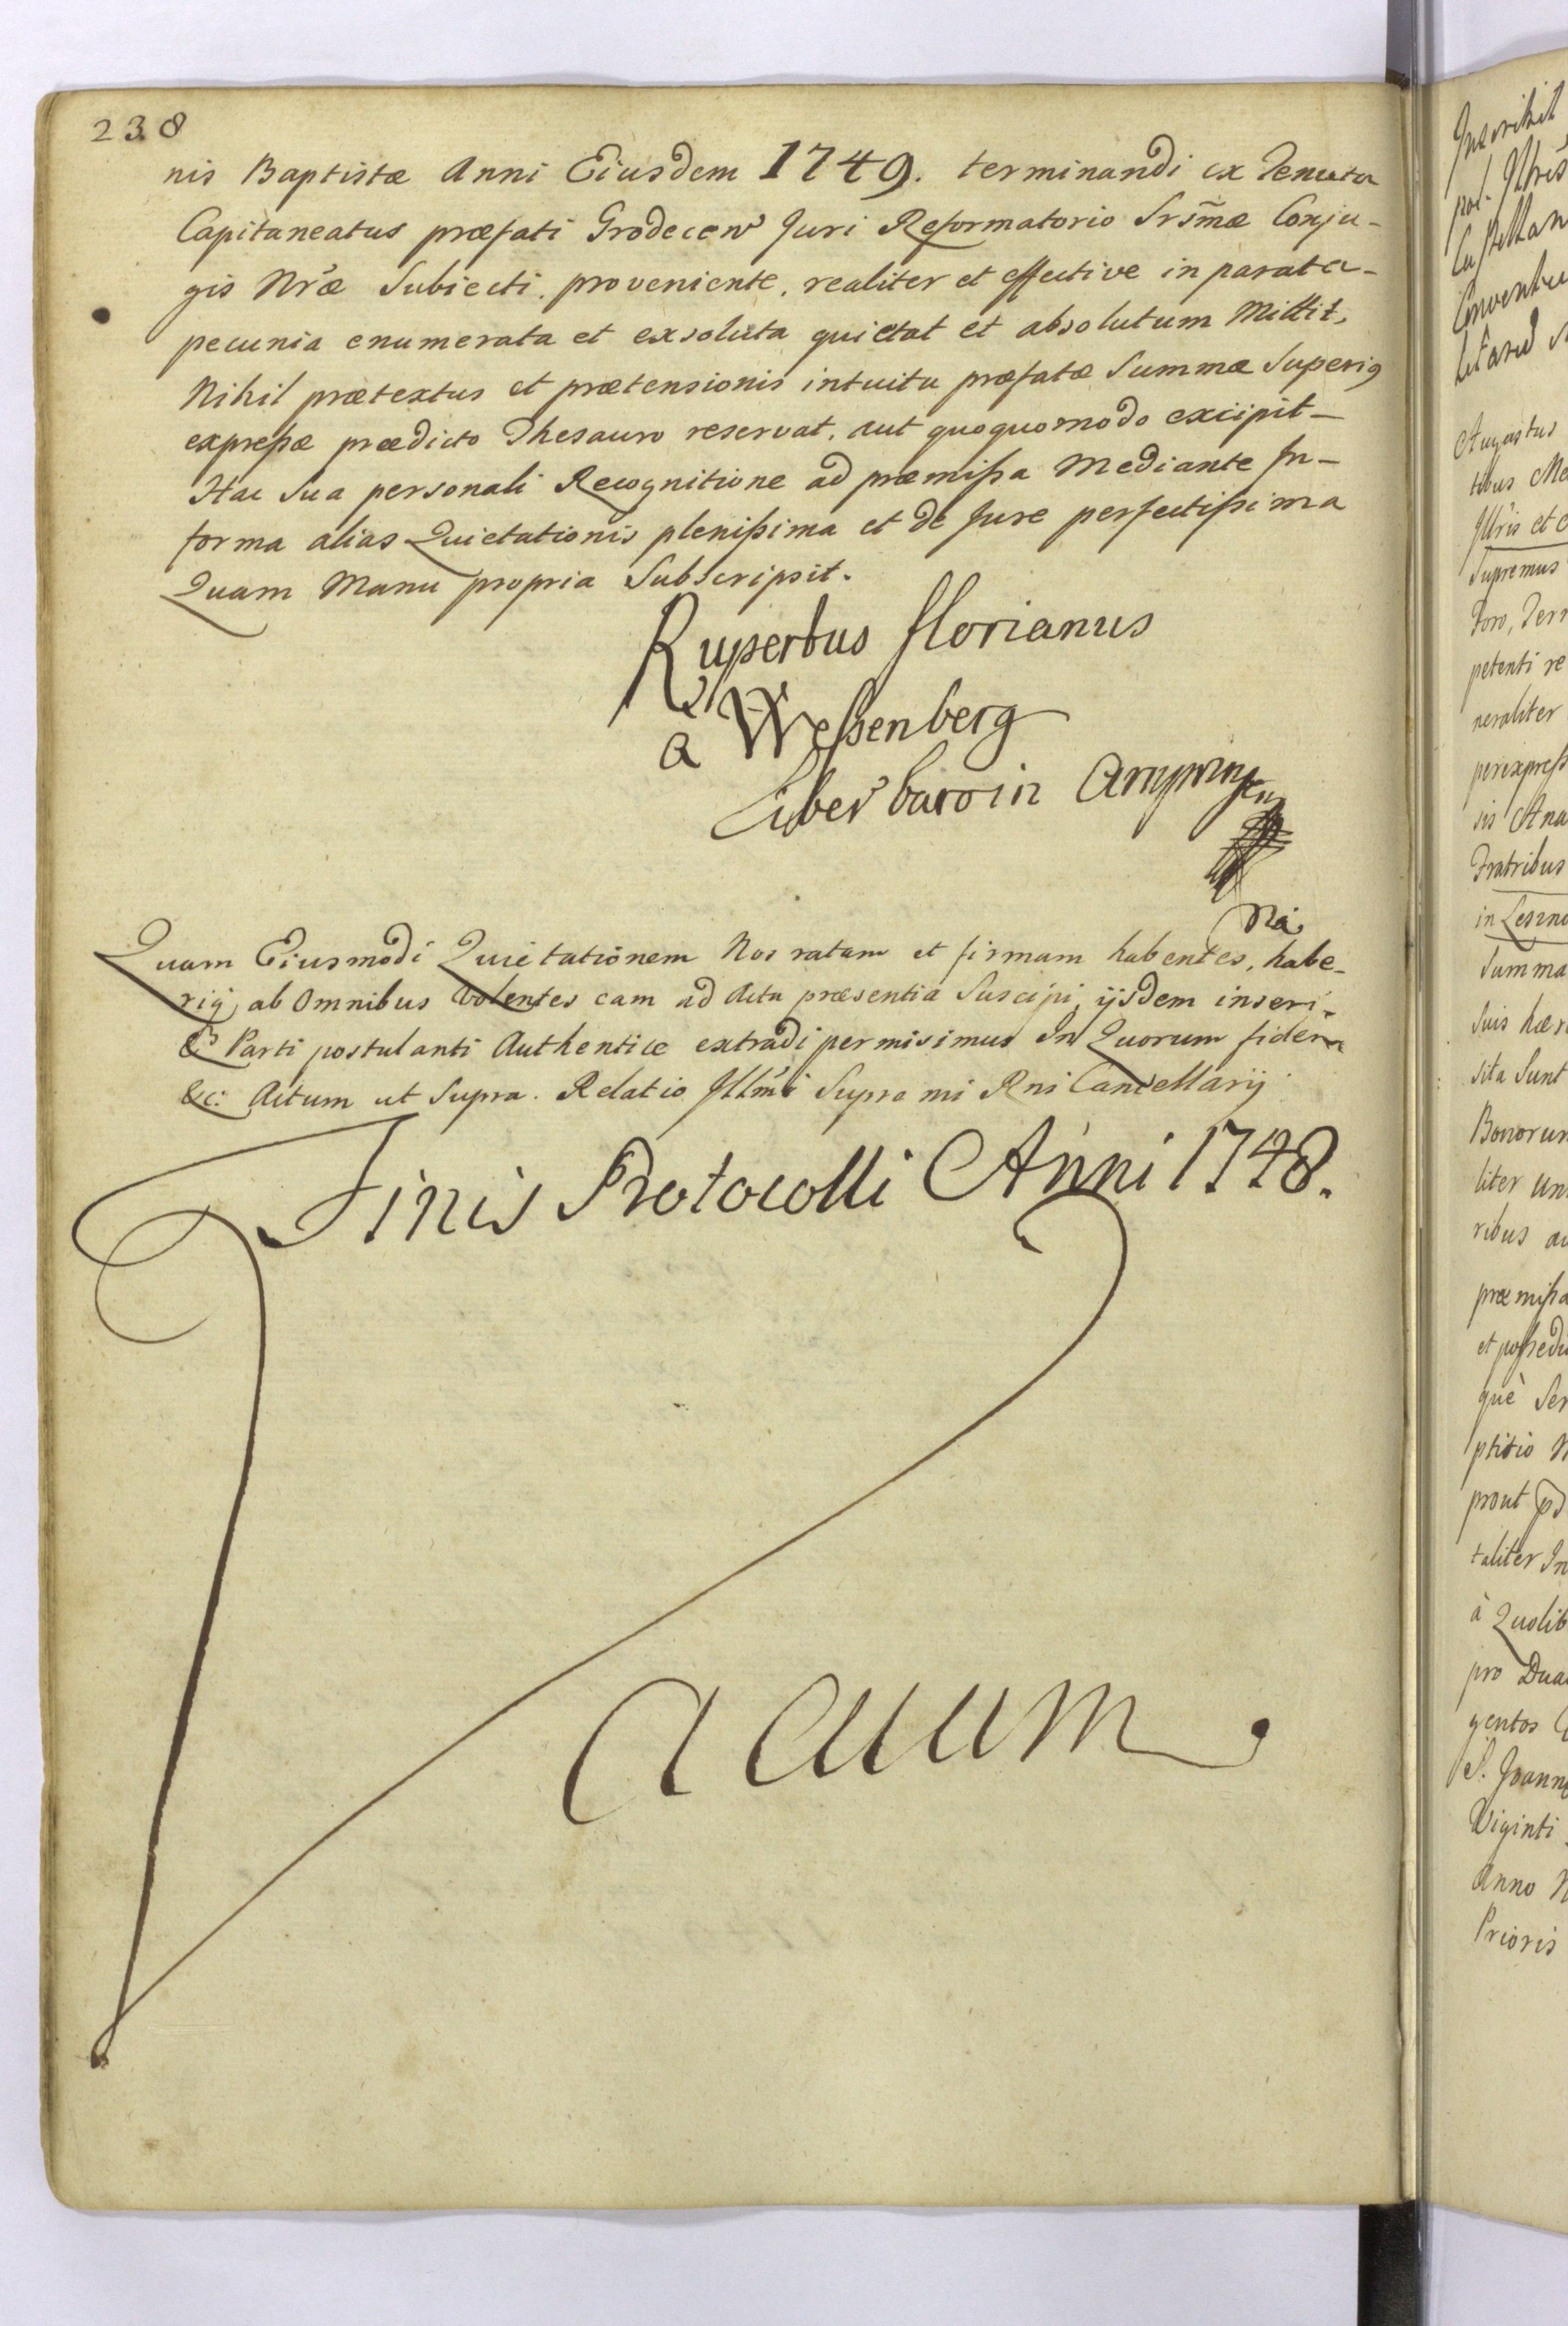 238
nis Baptistæ Anni Eiusdem 1749. terminandi ex Tenuta
Capitaneatus præfati Grodecen Juri Reformatorio Srs̃mæ Conju-
gis Nræ Subiecti, proveniente, realiter et effective in parata-
pecunia enumerata et exsoluta quietat et absolutum Mittit,
Nihil prætextus et prætensionis intuitu præfatæ Summæ Superig
expreßæ prædicto Thesauro reservat, aut quoquomodo excipit-
Hac Sua personali Recognitione ad præmißa Mediante In-
forma alias Quietationis plenißima et de Jure perfectißima
Quam Manu propria Subscripsit.
Rupertus florianus
a Weßenberg
Liber baro in Ampringen
Quam Eiusmodi Quietationem Nos ratam et firmam habentes, habe-
riq ab Omnibus Volentes eam ad Acta præsentia Suscipi, ijsdem inseri,
& Parti postulanti Authentice extradi permisimus In Quorum fidem
&c: Actum ut Supra. Relatio Illmi Supremi Rni Cancellarij
Finis Protocolli Anni 1748.
Vacuum
Inscribit
Castellan
Augustus
tibus Me
Illris et
Supremus
foro, Terr
petenti re
neraliter
perexpreß
sis Ana
Fratribus
in Leszno
Summa
Suis hær
sita Sunt
Bonorum
liter
ribus
præmißa
et poßedi
què Ser
prout
taliter In
à Quolib
pro Dua
gentos
S. Joann
Viginti
Anno
Prioris